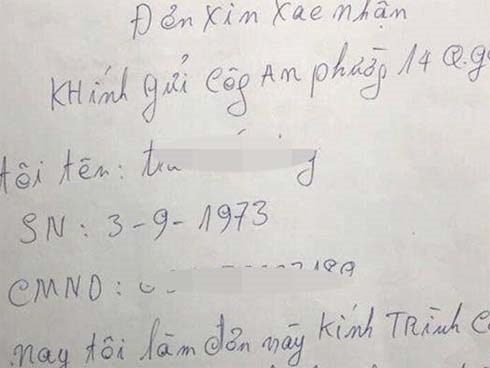 Đơn xin xac nhận
KHính gửi Côg An phườg 14 Q.g
tôi tên:
SN: 3-9-1973
CMND:
nay tôi làm đơn này kính TRình C